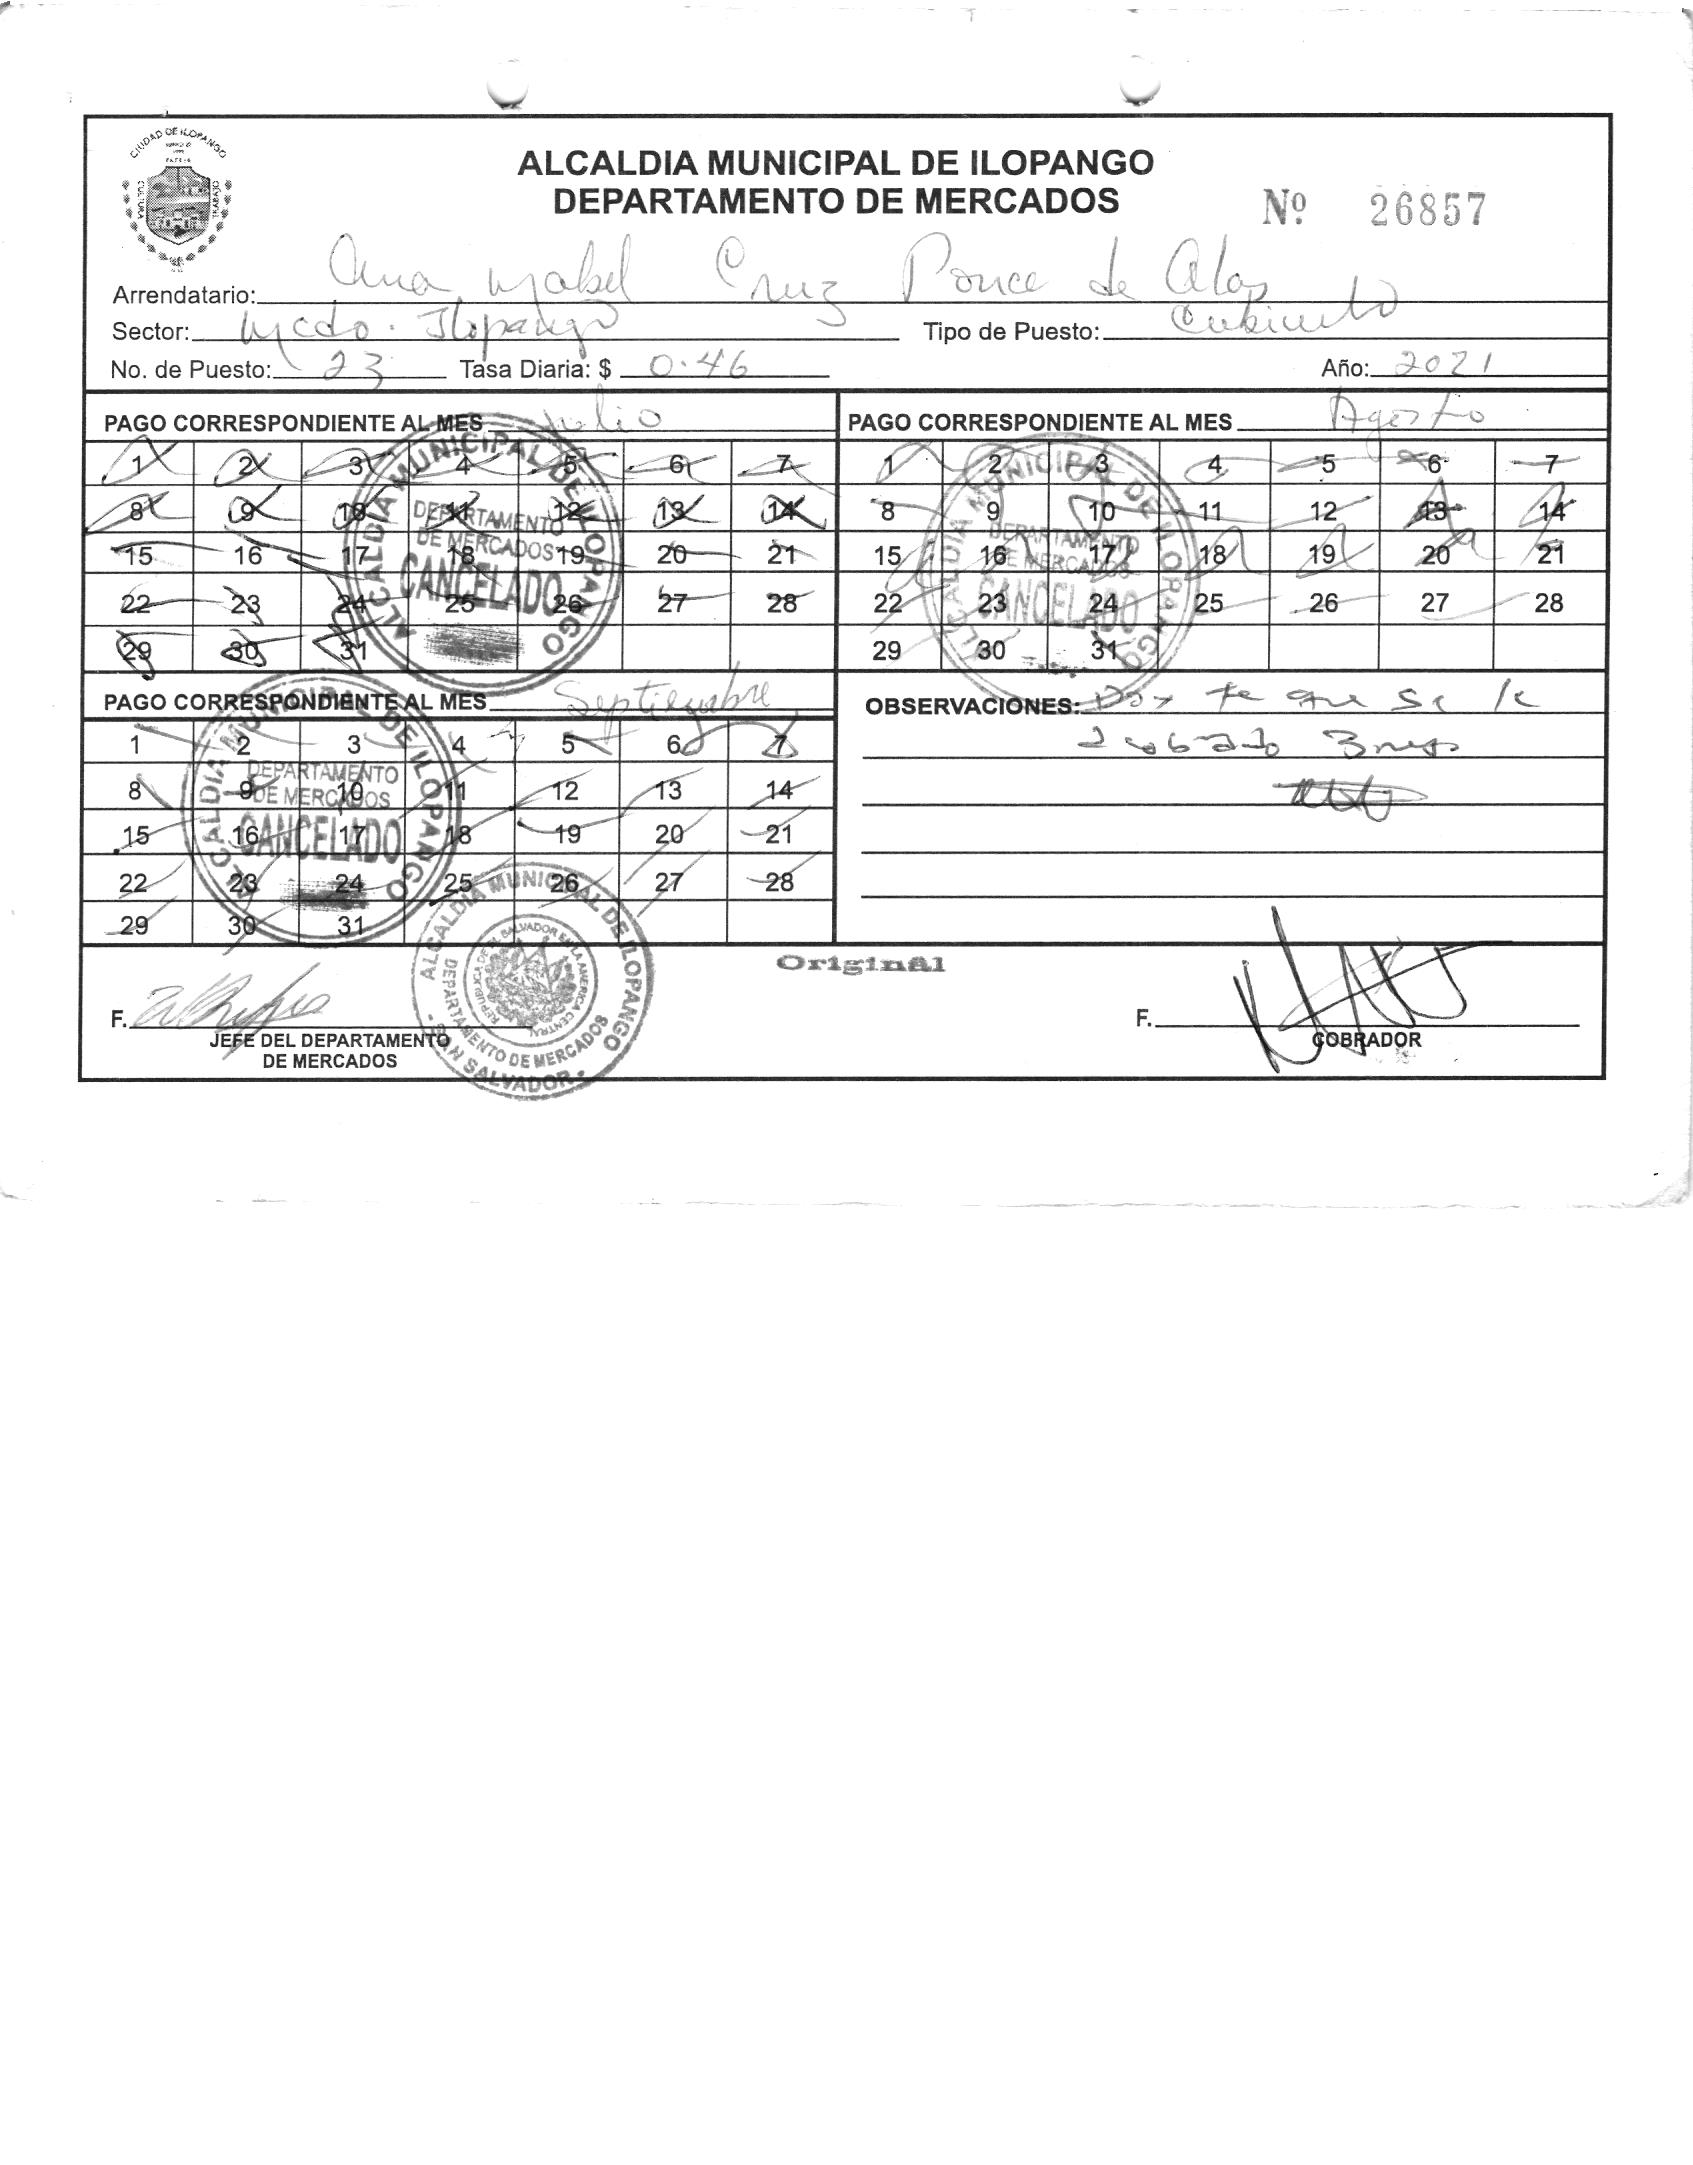 CIUDAD DE ILOPANGO
CULTURA
TRABAJO
ALCALDIA MUNICIPAL DE ILOPANGO
DEPARTAMENTO DE MERCADOS
Nº 26857
Arrendatario: Ana Ysabel Cruz Ponce de Alas
Sector: Mcdo. Ilopango Tipo de Puesto: Cubiculo
No. de Puesto: 23 Tasa Diaria: $ 0.46 Año: 2021
PAGO CORRESPONDIENTE AL MES Julio
1 2 3 4 5 6 7
8 9 10 11 12 13 14
15 16 17 18 19 20 21
22 23 24 25 26 27 28
29 30 31
ALCALDIA MUNICIPAL DE ILOPANGO
DEPARTAMENTO
DE MERCADOS
CANCELADO
PAGO CORRESPONDIENTE AL MES Agosto
1 2 3 4 5 6 7
8 9 10 11 12 13 14
15 16 17 18 19 20 21
22 23 24 25 26 27 28
29 30 31
ALCALDIA MUNICIPAL DE ILOPANGO
DEPARTAMENTO
DE MERCADOS
CANCELADO
PAGO CORRESPONDIENTE AL MES Septiembre
1 2 3 4 5 6 7
8 9 10 11 12 13 14
15 16 17 18 19 20 21
22 23 24 25 26 27 28
29 30 31
ALCALDIA MUNICIPAL DE ILOPANGO
DEPARTAMENTO
DE MERCADOS
CANCELADO
OBSERVACIONES: Doy fe que se le
Original
F.
JEFE DEL DEPARTAMENTO
DE MERCADOS
ALCALDIA MUNICIPAL DE ILOPANGO
DEPARTAMENTO DE MERCADOS
REPUBLICA DE EL SALVADOR EN LA AMERICA CENTRAL
- SAN SALVADOR -
F.
COBRADOR